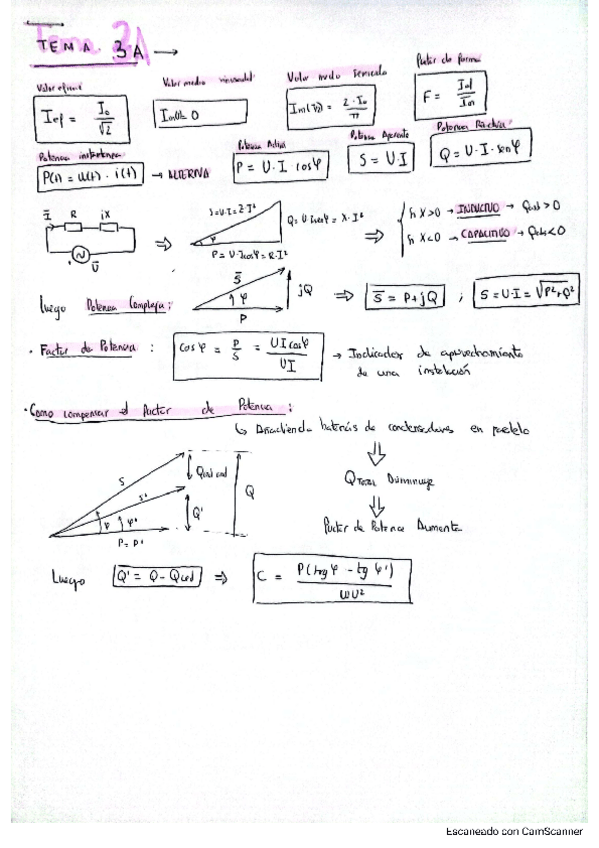 TEMA 3A →
Valor eficaz
Ief = I₀/√2
Valor medio
Im(T) = 0
Valor medio Semiciclo
Im(T/2) = 2·I₀/π
Factor de forma
F = Ief/Im
Potencia instantanea
P(t) = u(t) · i(t) → ALTERNA
Potencia Activa
P = U·I·cosφ
Potencia Aparente
S = U·I
Potencia Reactiva
Q = U·I·senφ
I R jX
U
⇒
S=U·I=Z·I²
φ
Q = U·I senφ = X·I²
P = U·I cosφ = R·I²
⇒
Si X>0 → INDUCTIVO → Q >0
Si X<0 → CAPACITIVO → Q <0
Luego Potencia Compleja:
S φ jQ
P
⇒ S = P+jQ ; S=U·I=√P²+Q²
· Factor de Potencia : cosφ = P/S = UIcosφ/UI → Indicador de aprovechamiento
de una instalación
· Como compensar el factor de Potencia :
↳ Añadiendo baterías de condensadores en paralelo
⇓
QTotal Disminuye
⇓
Factor de Potencia Aumenta
S S' Qcond Q Q'
φ φ'
P = P'
Luego Q' = Q - Qcond ⇒ C = P(tgφ - tgφ')/ωU²
Escaneado con CamScanner